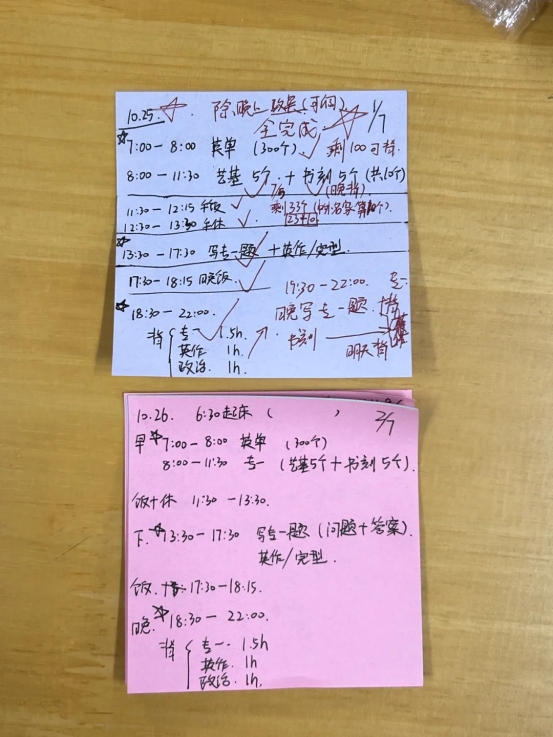 10.25. 除晚上政英(可伺)
全完成 1/7
7:00 — 8:00 英单 (300个) 剩100可背.
8:00 — 11:30 艺基 5个 + 书刻 5个 (共10个)
(晚背)
11:30 — 12:15 午饭 剩33个
12:30 — 13:30 午休 23+10
13:30 — 17:30 写专一题 + 英作/完型.
17:30 — 18:15 晚饭.
19:30 — 22:00. 专一
18:30 — 22:00. 晚写专一题. 背
背 专一 1.5h. 书刻
英作 1h 明天背
政治. 1h.
10.26. 6:30起床 ( ) 2/7
早 7:00 — 8:00 英单 (300个)
8:00 — 11:30 专一 (艺基5个 + 书刻 5个).
饭+休 11:30 — 13:30.
下. 13:30 — 17:30 写专一题 (问题+答案).
英作/完型.
饭. 17:30 — 18:15.
晚. 18:30 — 22:00.
背 专一. 1.5h
英作. 1h
政治. 1h.